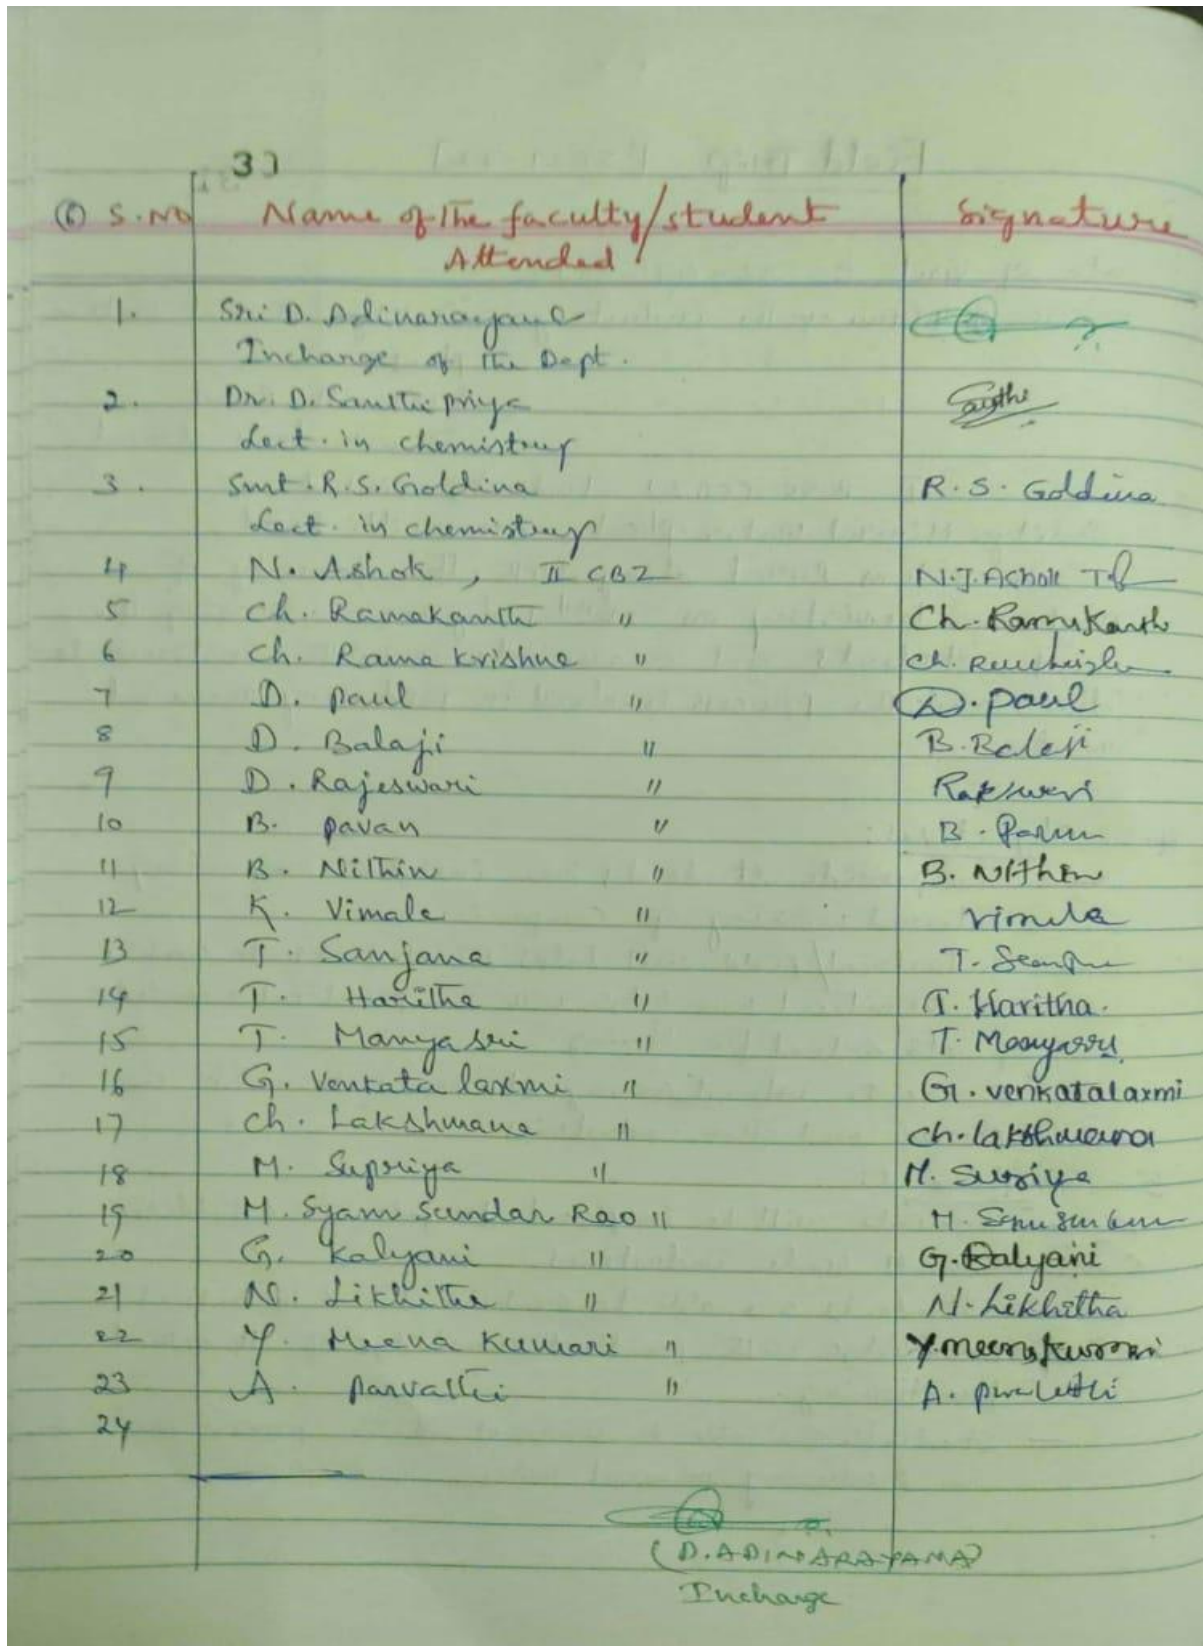 3)
(6) S.No Name of the faculty/student Signature
Attended
1. Sri D. Adinarayana
Incharge of the Dept.
2. Dr. D. Santhi priya Santhi
Lect. in chemistry
3. Smt. R.S. Goldina R.S. Goldina
Lect. in chemistry
4 N. Ashok, II CBZ N.J. Ashok
5 Ch. Ramakanth " Ch. Ramakanth
6 Ch. Rama Krishna " Ch.
7 D. paul " D. paul
8 D. Balaji " B. Balaji
9 D. Rajeswari "
10 B. pavan " B. Pavan
11 B. Nithin " B. Nithin
12 K. Vimala " Vimala
13 T. Sanjana " T.
14 T. Haritha " T. Haritha.
15 T. Manyasri " T.
16 G. Venkata laxmi " G. venkatalaxmi
17 Ch. Lakshmana " Ch. lakshmana
18 M. Supriya " M.
19 M. Syam Sundar Rao " M.
20 G. Kalyani " G. Kalyani
21 N. Likhitha " N. Likhitha
22 Y. Meena Kumari " Y. meena kumari
23 A. Parvathi " A.
24
(D. ADINARAYANA)
Incharge